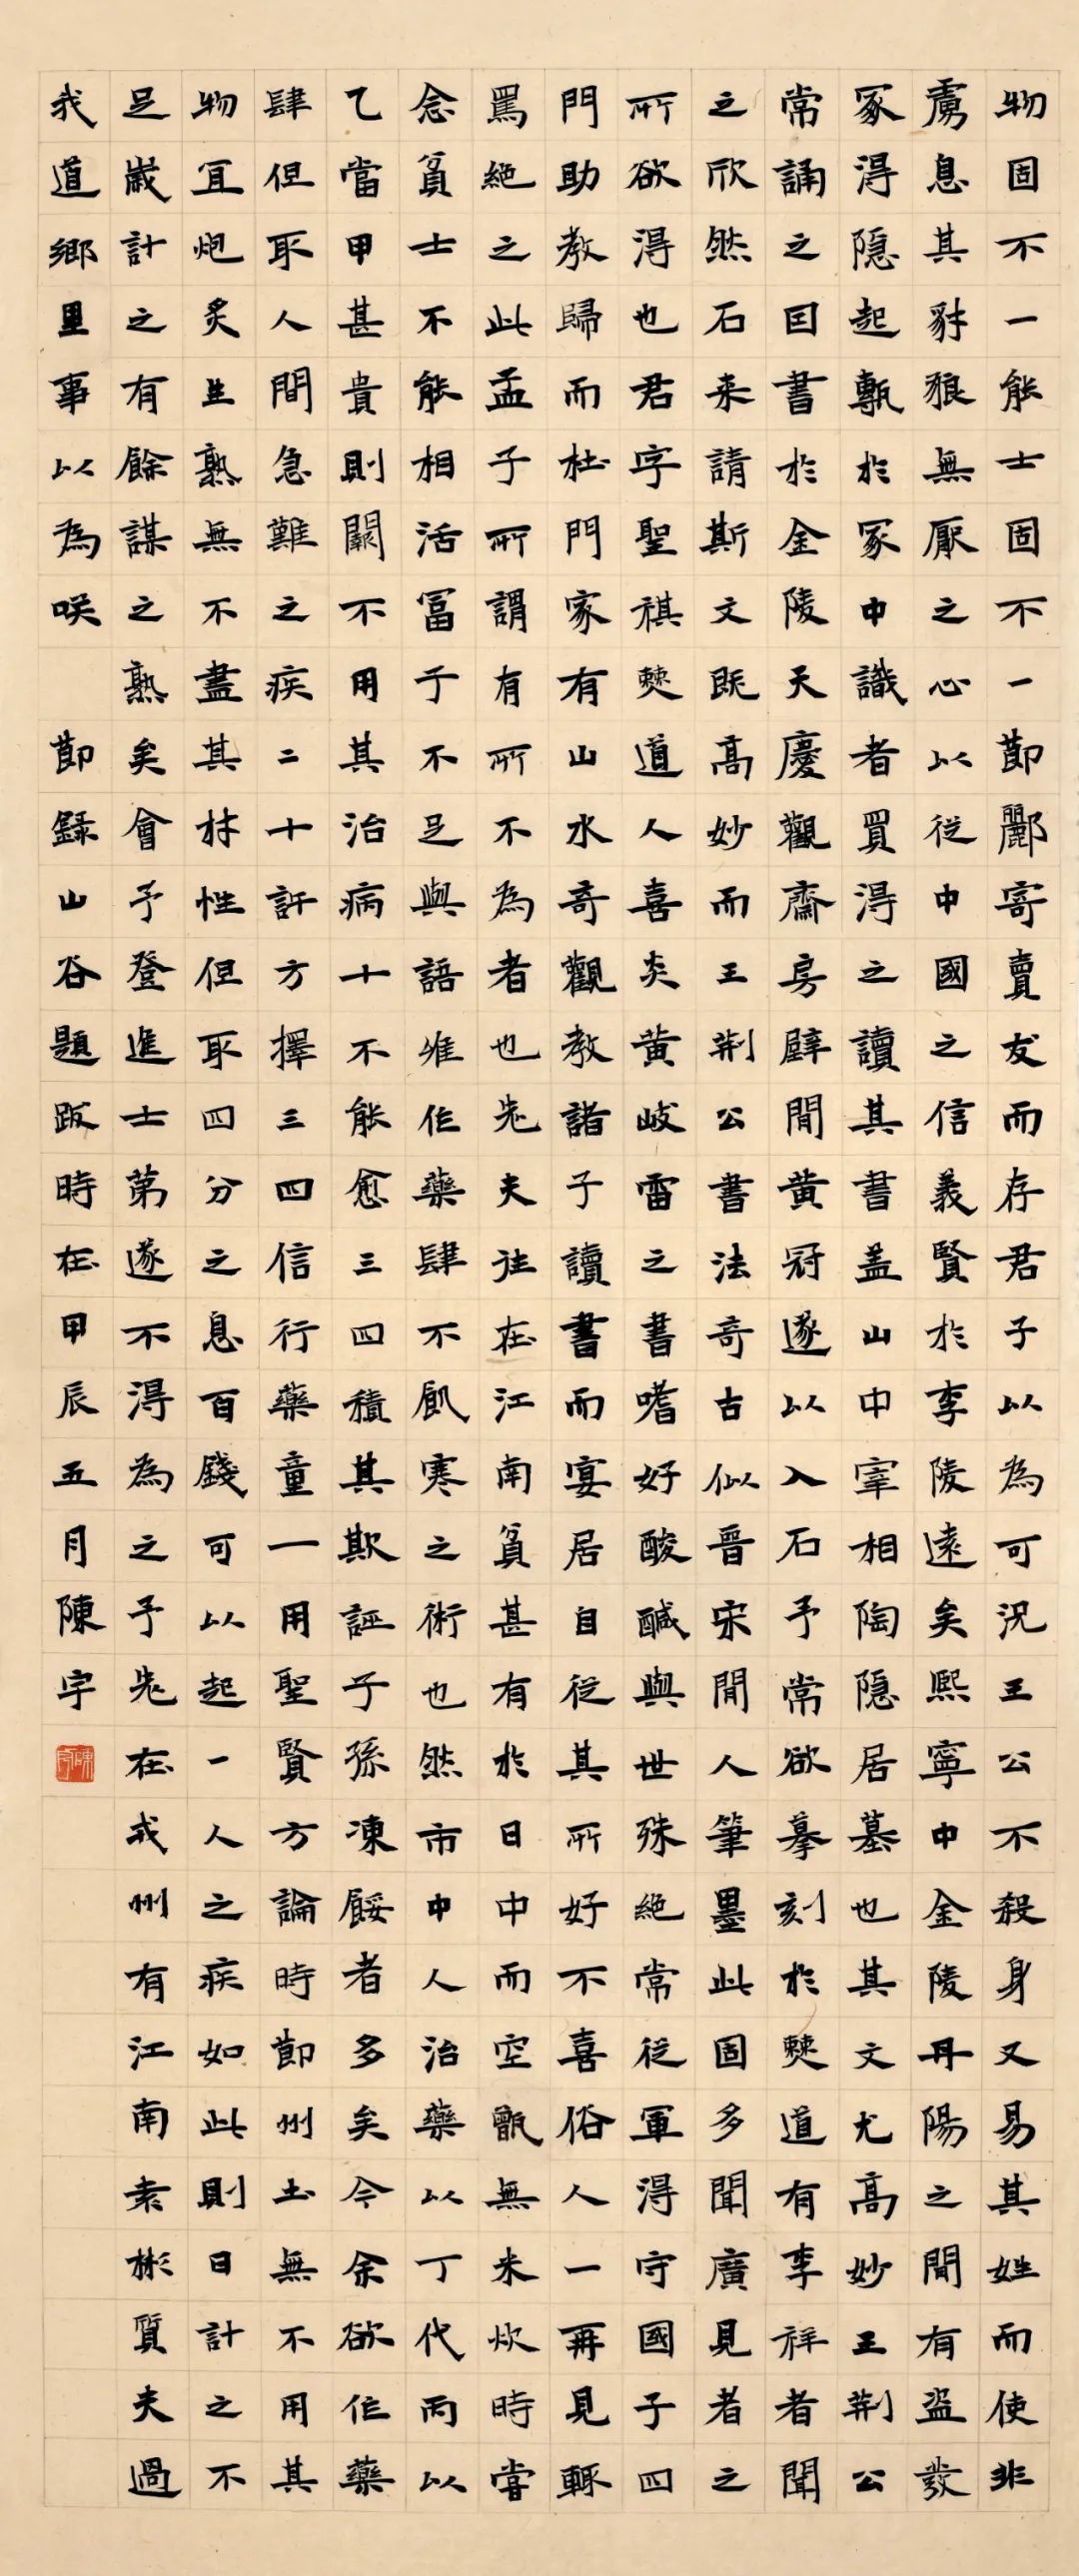 物固不一能士固不一節酈寄賣友而存君子以為可況王公不殺身又易其姓而使非
虜息其豺狼無厭之心以從中國之信義賢於李陵遠矣熙寧中金陵丹陽之間有盜發
冢得隱起甎於冢中識者買得之讀其書蓋山中宰相陶隱居墓也其文尤高妙王荆公
常誦之因書於金陵天慶觀齋房壁間黄冠遂以入石予常欲摹刻於僰道有李祥者聞
之欣然石来請斯文既高妙而王荆公書法奇古似晉宋間人筆墨此固多聞廣見者之
所欲得也君字聖祺僰道人喜炎黄岐雷之書嗜好酸醎與世殊絶常從軍得守國子四
門助教歸而杜門家有山水奇觀教諸子讀書而宴居自從其所好不喜俗人一再見輒
罵絶之此孟子所謂有所不為者也先夫往在江南貧甚有於日中而空甑無米炊時嘗
念貧士不能相活富于不足與語唯作藥肆不飢寒之術也然市中人治藥以丁代丙以
乙當甲甚貴則闕不用其治病十不能愈三四積其欺誣子孫凍餒者多矣今余欲作藥
肆但取人間急難之疾二十許方擇三四信行藥童一用聖賢方論時節州土無不用其
物宜炮炙生熟無不盡其材性但取四分之息百錢可以起一人之疾如此則日計之不
足歲計之有餘謀之熟矣會予登進士第遂不得為之予先在戎州有江南袁彬質夫過
我道鄉里事以為咲 節録山谷題跋時在甲辰五月陳宇
陳宇